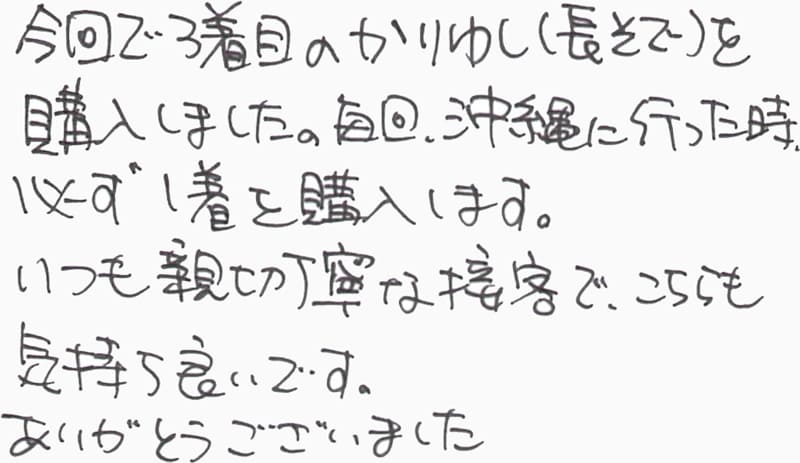 今回で3着目のかりゆし(長そで)を
購入しました。毎回、沖縄に行った時、
必ず1着を購入します。
いつも親切丁寧な接客で、こちらも
気持ち良いです。
ありがとうございました